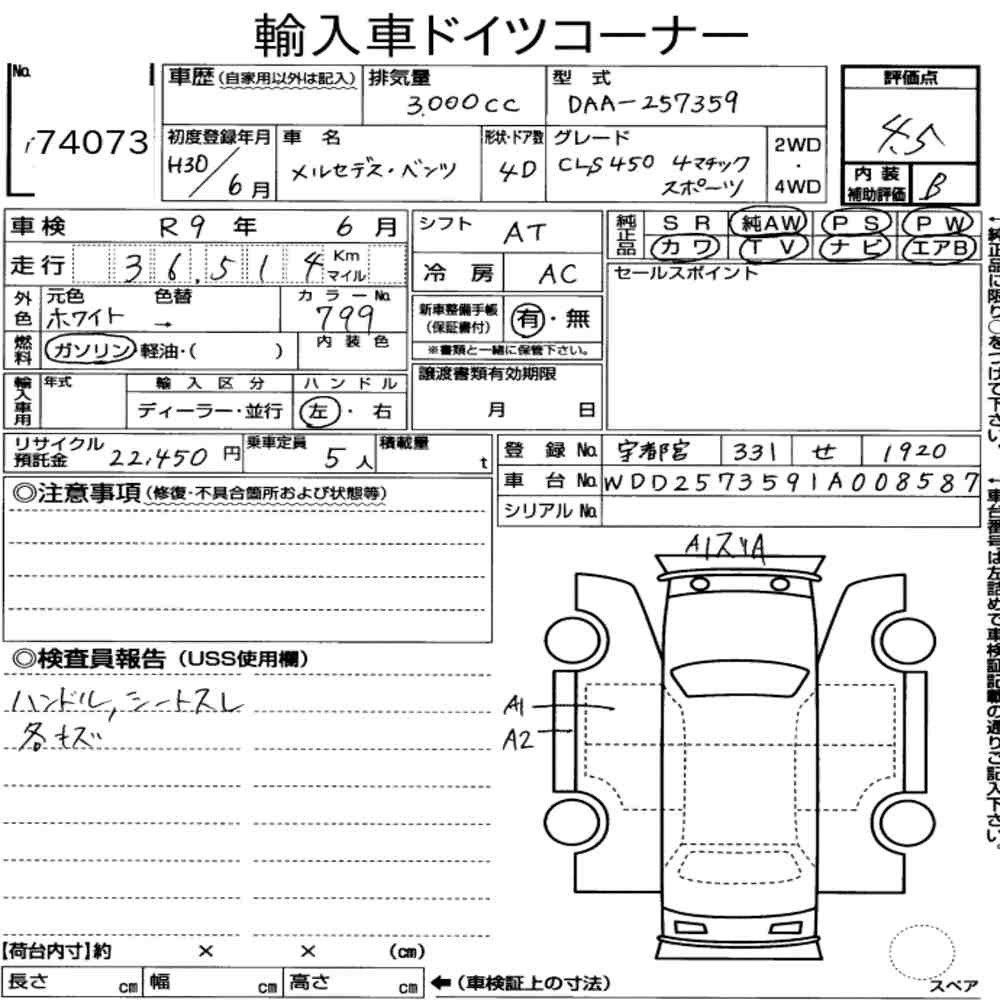 輸入車ドイツコーナー
No. 74073
車歴(自家用以外は記入) 排気量 3,000cc 型式 DAA-257359 評価点 4.5
初度登録年月 H30/6月 車名 メルセデス・ベンツ 形状・ドア数 4D グレード CLS450 4マチック スポーツ 2WD・4WD 内装補助評価 B
車検 R9年 6月 シフト AT 純正品 SR 純AW PS PW
カワ TV ナビ エアB
走行 36,514 Km マイル 冷房 AC セールスポイント
外色 元色 ホワイト 色替 → カラーNo. 799 新車整備手帳(保証書付) 有・無
燃料 ガソリン・軽油・( ) 内装色 ※書類と一緒に保管下さい。
輸入車用 年式 輸入区分 ディーラー・並行 ハンドル 左・右 譲渡書類有効期限 月 日
リサイクル預託金 22,450円 乗車定員 5人 積載量 t 登録No. 宇都宮 331 せ 1920
車台No. WDD2573591A008587
シリアルNo.
◎注意事項(修復・不具合箇所および状態等)
A1スリA
◎検査員報告(USS使用欄)
ハンドル,シートスレ
各キズ
A1
A2
【荷台内寸】約 × × (cm)
長さ cm 幅 cm 高さ cm ←(車検証上の寸法)
スペア
←純正品に限り○をつけて下さい。
←車台番号は左詰めで車検証記載の通りご記入下さい。